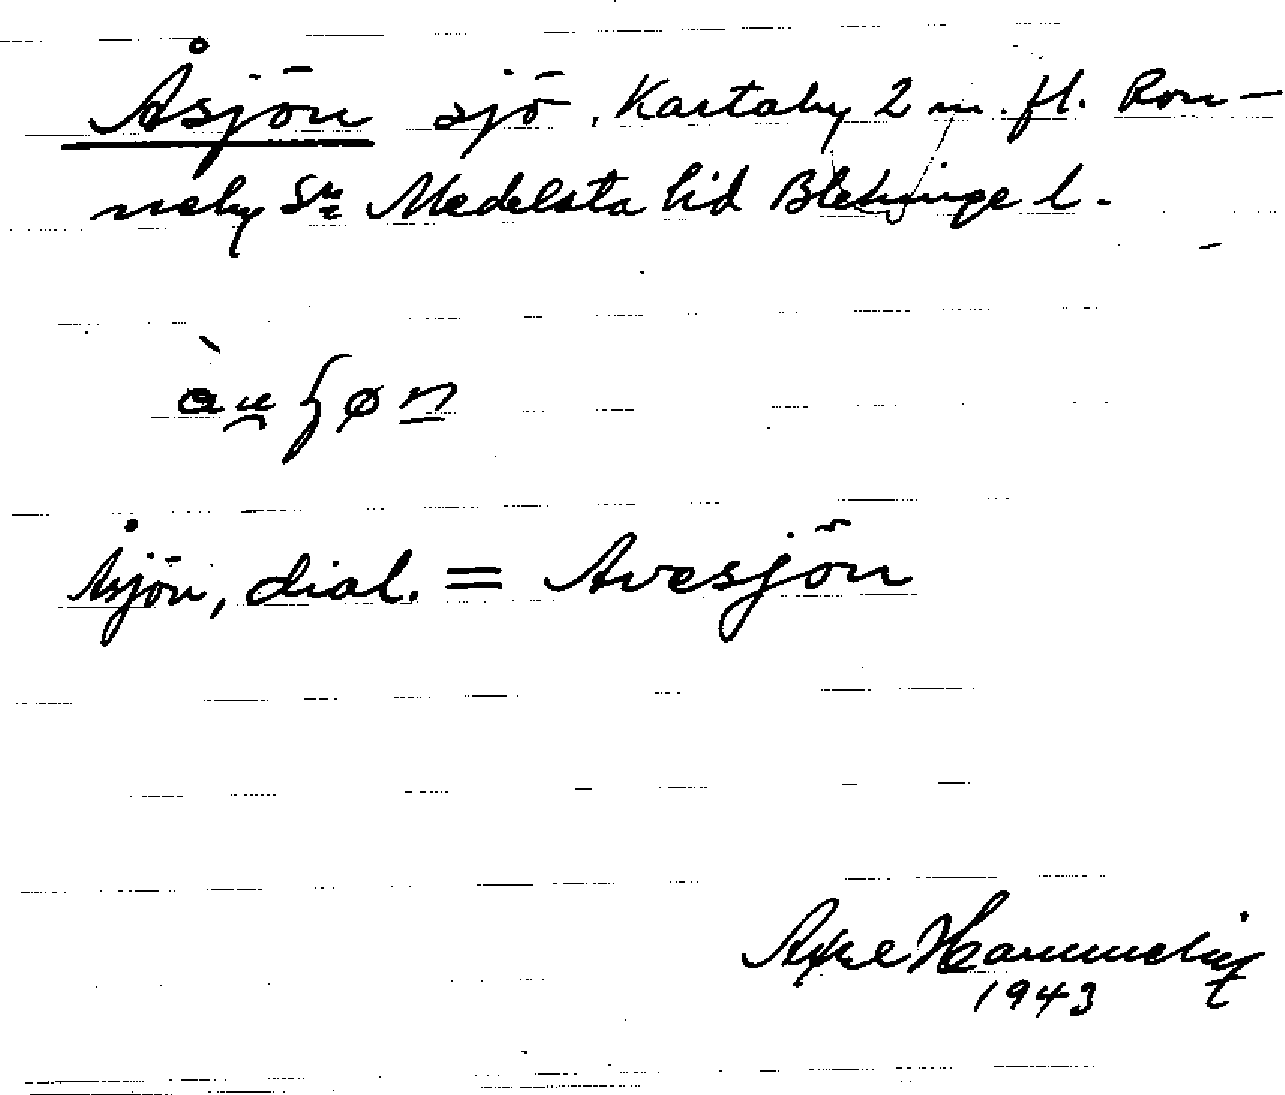 Åsjön sjö, Kartaby 2 m. fl. Ron-
neby Sn Medelsta hd Blekinge l.
Åsjön, dial. = Avesjön
Axel
1943